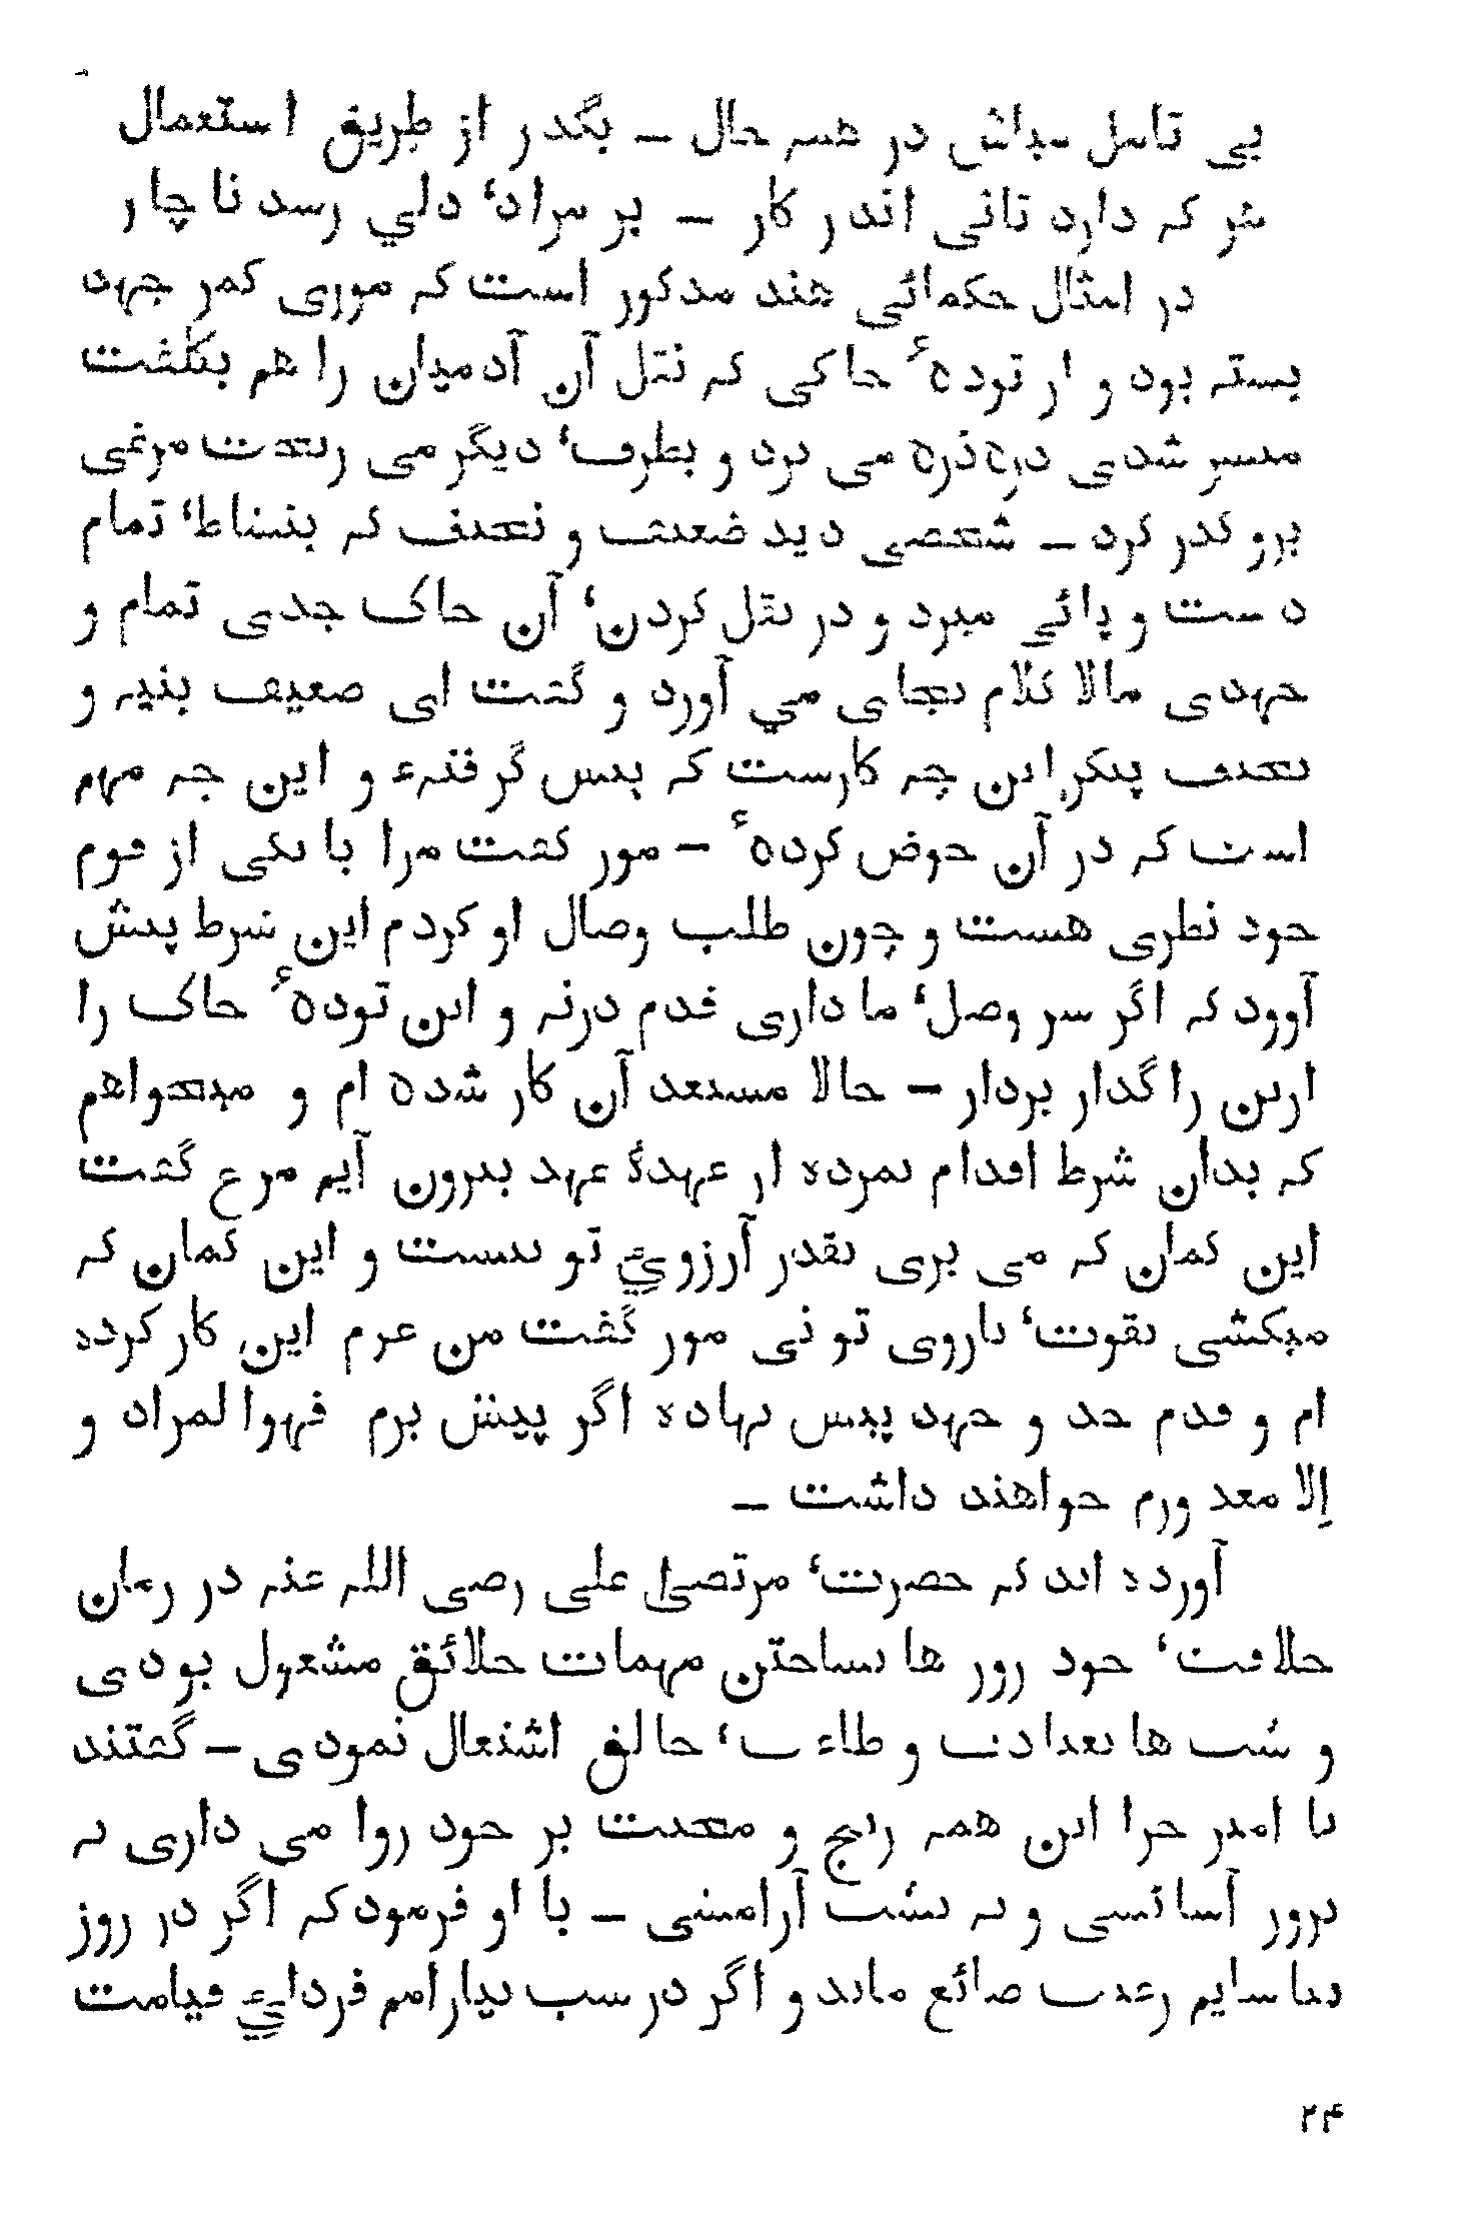 بی تامل مباش در همه حال — بگذر از طریق استعمال
هر که دارد تانی اندر کار — بر مراد، دلي رسد ناچار
در امثال حکمائی هند مذکور است که موری کمر جهد
بسته بود و از تودهٔ خاکی که نقل آن آدمیان را هم بتکلفت
میسر شدی ذره ذره می برد و بطرف، دیگر می ریخت مرغی
برو گذر کرد — شخصی دید ضعیف و نحیف که بنشاط، تمام
دست و پائي میزد و در نقل کردن، آن خاک جدی تمام و
جهدی مالا کلام بجای مي آورد و گفت ای ضعیف بنیه و
نحیف پیکر این چه کارست که پیش گرفتهء و این چه مهم
است که در آن خوض کردهٔ — مور گفت مرا با یکی از قوم
خود نظری هست و چون طلب وصال او کردم این شرط پیش
آورد که اگر سر وصل، ما داری قدم درنه و این تودهٔ خاک را
ازین راگذار بردار — حالا مستعد آن کار شده ام و میخواهم
که بدان شرط اقدام نموده از عهدهٔ عهد بیرون آیم مرغ گفت
این گمان که می بری بقدر آرزوئ تو نیست و این کمان که
میکشی بقوت، بازوی تو نی مور گفت من عزم این کار کرده
ام و قدم جد و جهد پیش نهاده اگر پیش برم فهوا لمراد و
اِلا معذورم خواهند داشت —
آورده اند که حضرت، مرتضیٰ علی رضی الله عنه در زمان
خلافت، خود روز ها بساختن مهمات خلائق مشغول بودی
و شب ها بعبادت و طاعت، خالق اشتغال نمودی — گفتند
یا امیر چرا این همه رنج و محنت بر خود روا می داری نه
بروز آسائشی و نه بشب آرامشی — با او فرمود که اگر در روز
بیاسایم رعیت ضائع ماند و اگر در شب بیارامم فردائ قیامت
۲۴